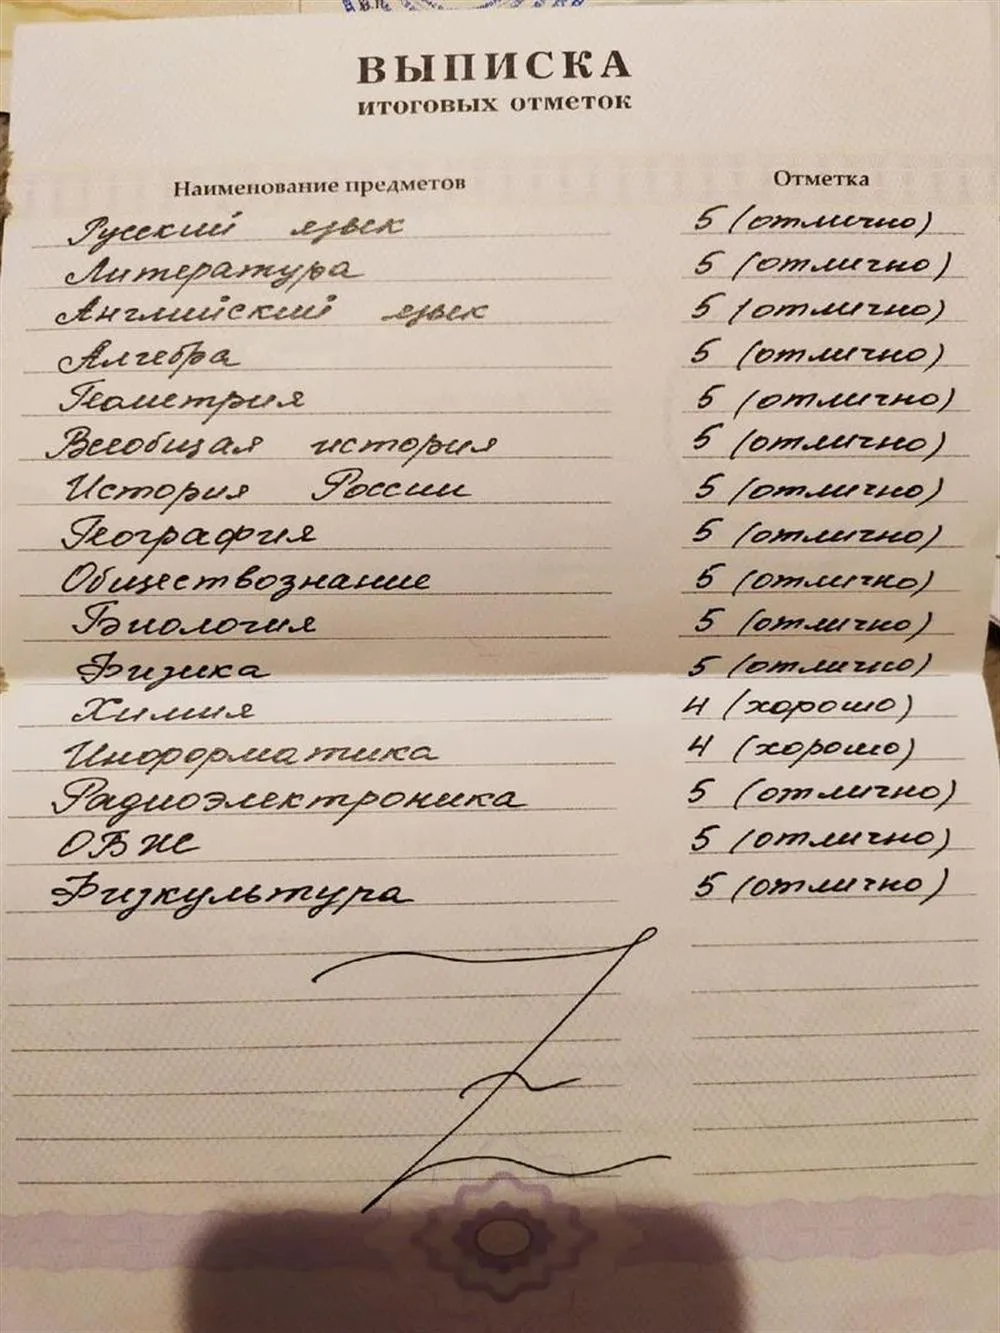 ВЫПИСКА
ИТОГОВЫХ ОТМЕТОК
Наименование предметов Отметка
Русский язык 5 (отлично)
Литература 5 (отлично)
Английский язык 5 (отлично)
Алгебра 5 (отлично)
Геометрия 5 (отлично)
Всеобщая история 5 (отлично)
История России 5 (отлично)
География 5 (отлично)
Обществознание 5 (отлично)
Биология 5 (отлично)
Физика 5 (отлично)
Химия 4 (хорошо)
Информатика 4 (хорошо)
Радиоэлектроника 5 (отлично)
ОБЖ 5 (отлично)
Физкультура 5 (отлично)